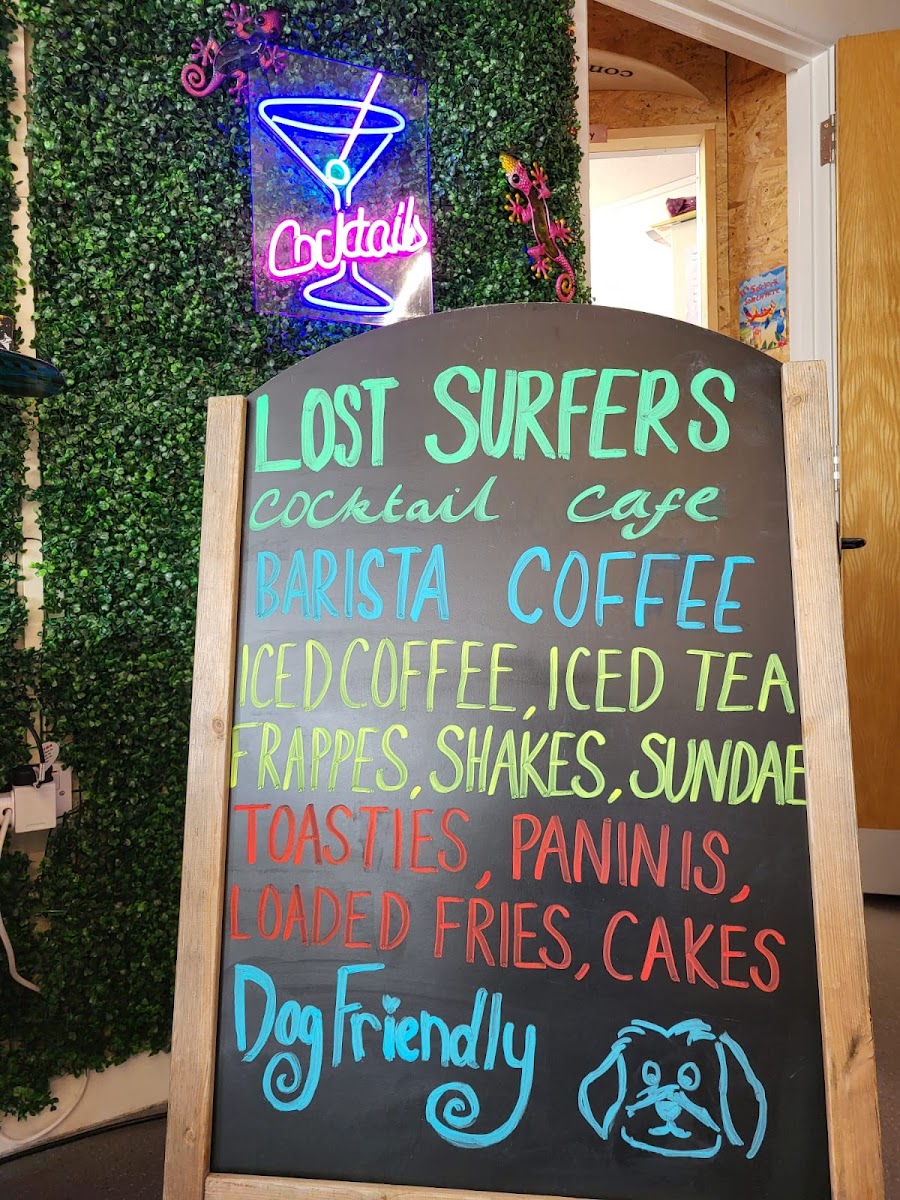 Cocktails
LOST SURFERS
cocktail cafe
BARISTA COFFEE
ICED COFFEE, ICED TEA
FRAPPES, SHAKES, SUNDAE
TOASTIES, PANINIS,
LOADED FRIES, CAKES
Dog Friendly